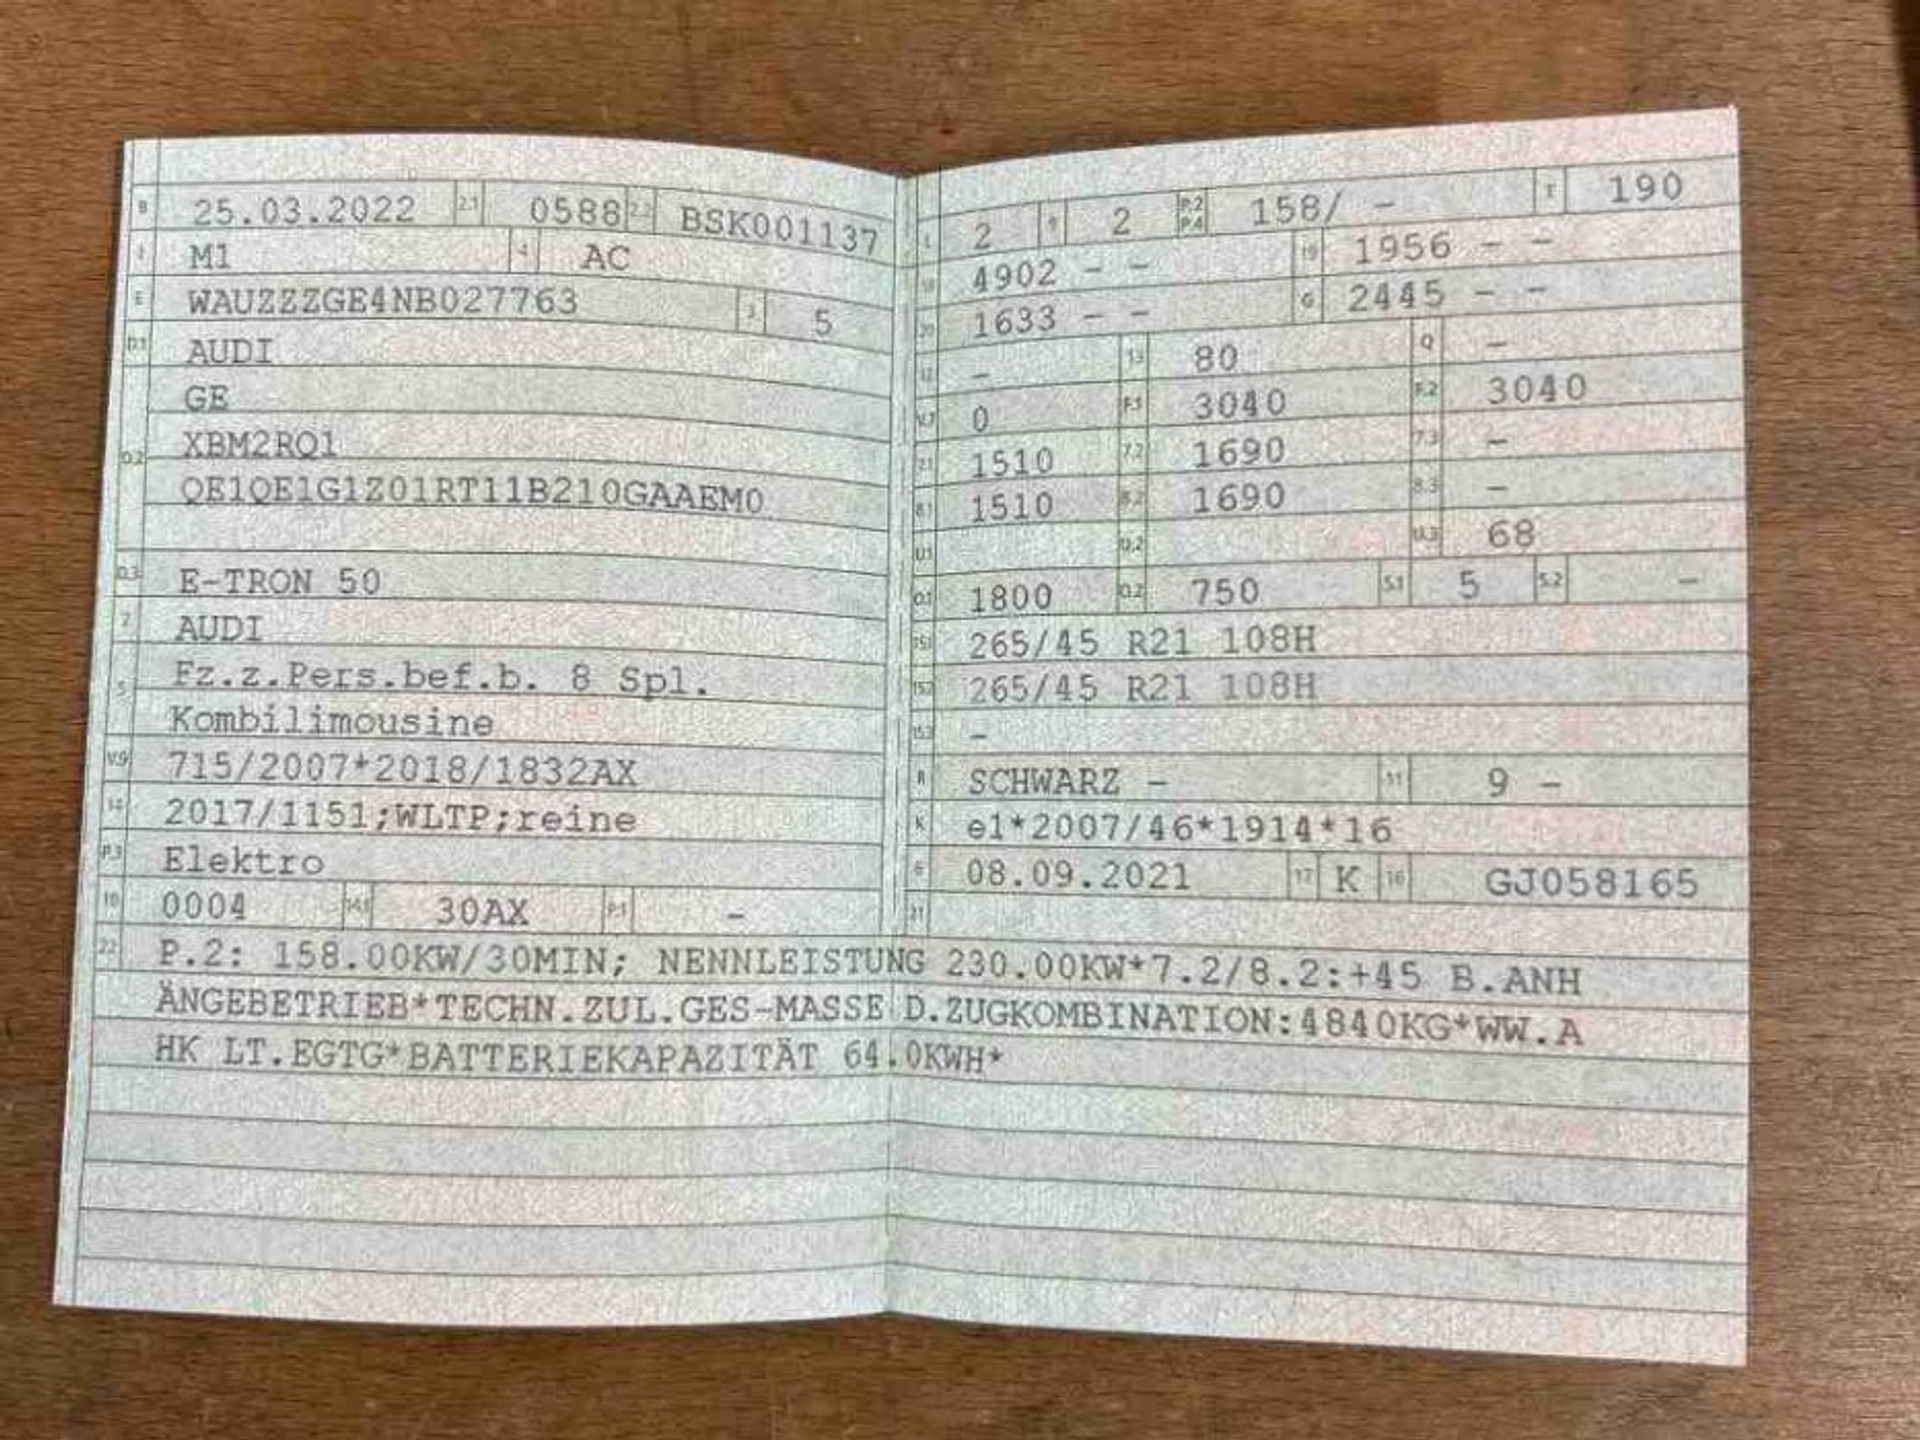 B 25.03.2022 2.1 0588 2.2 BSK001137
J M1 4 AC
E WAUZZZGE4NB027763 3 5
D.1 AUDI
GE
D.2 XBM2RQ1
QE1QE1G1Z01RT11B210GAAEM0
D.3 E-TRON 50
2 AUDI
5 Fz.z.Pers.bef.b. 8 Spl.
Kombilimousine
V.9 715/2007*2018/1832AX
14 2017/1151;WLTP;reine
P.3 Elektro
10 0004 14.1 30AX P.1 -
L 2 9 2 P.2 P.4 158/ - T 190
18 4902 - - 19 1956 - -
20 1633 - - G 2445 - -
12 - 13 80 Q -
V.7 0 F.1 3040 F.2 3040
7.1 1510 7.2 1690 7.3 -
8.1 1510 8.2 1690 8.3 -
U.1 U.2 U.3 68
O.1 1800 O.2 750 S.1 5 S.2 -
15.1 265/45 R21 108H
15.2 265/45 R21 108H
15.3 -
R SCHWARZ - 11 9 -
K e1*2007/46*1914*16
6 08.09.2021 17 K 16 GJ058165
21
22 P.2: 158.00KW/30MIN; NENNLEISTUNG 230.00KW*7.2/8.2:+45 B.ANH
ÄNGEBETRIEB*TECHN.ZUL.GES-MASSE D.ZUGKOMBINATION:4840KG*WW.A
HK LT.EGTG*BATTERIEKAPAZITÄT 64.0KWH*